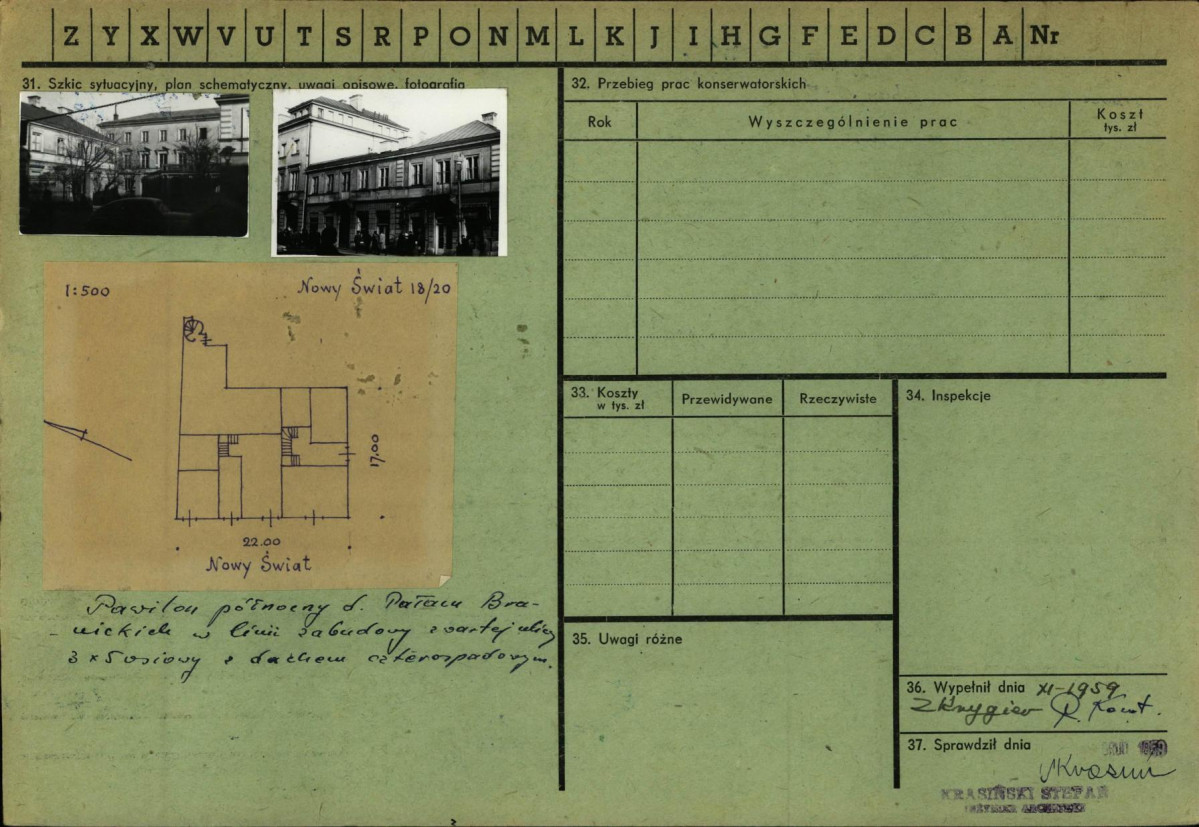 Z Y X W V U T S R P O N M L K J I H G F E D C B A Nr
31. Szkic sytuacyjny, plan schematyczny, uwagi opisowe, fotografia
1:500
Nowy Świat 18/20
17.00
22.00
Nowy Świat
Pawilon północny d. Pałacu Bra-
-nickich w linii zabudowy zwartej ulicy
3 x 5 osiowy z dachem czterospadowym.
32. Przebieg prac konserwatorskich
Rok
Wyszczególnienie prac
Koszt
tys. zł
33. Koszty
w tys. zł
Przewidywane
Rzeczywiste
34. Inspekcje
35. Uwagi różne
36. Wypełnił dnia XI-1959
37. Sprawdził dnia
KRASIŃSKI STEFAN